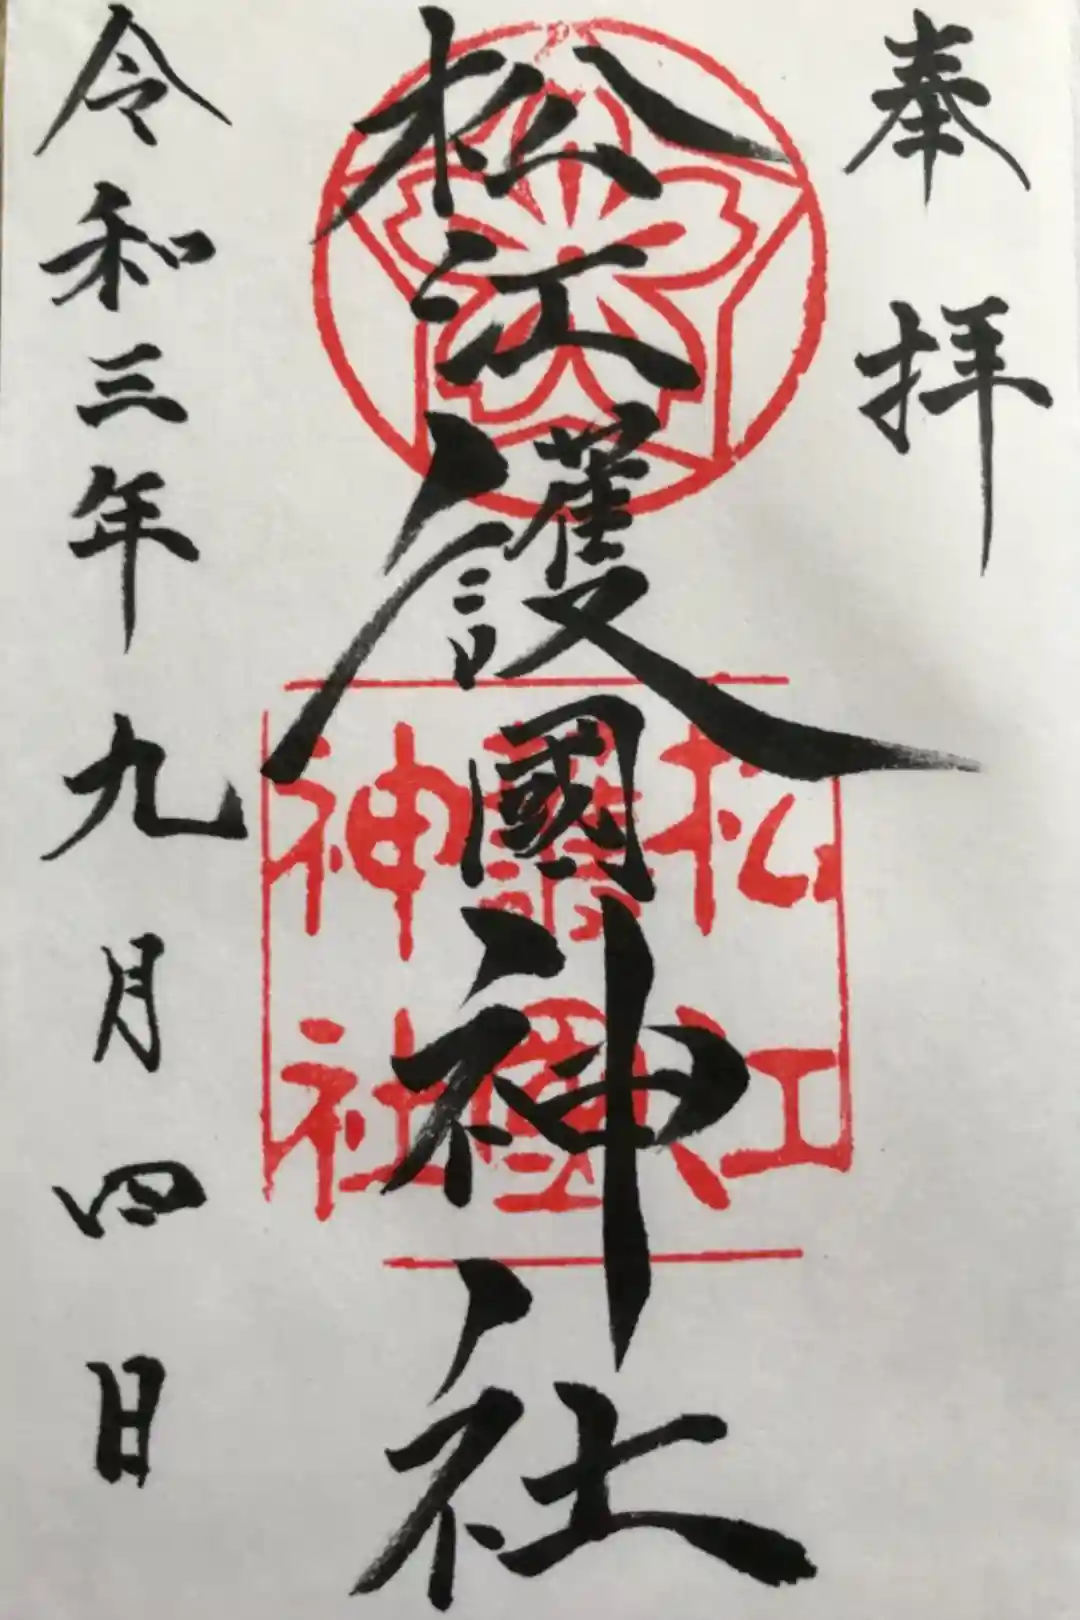 奉拝
松江護國神社
松江
護國
神社
令和三年九月四日